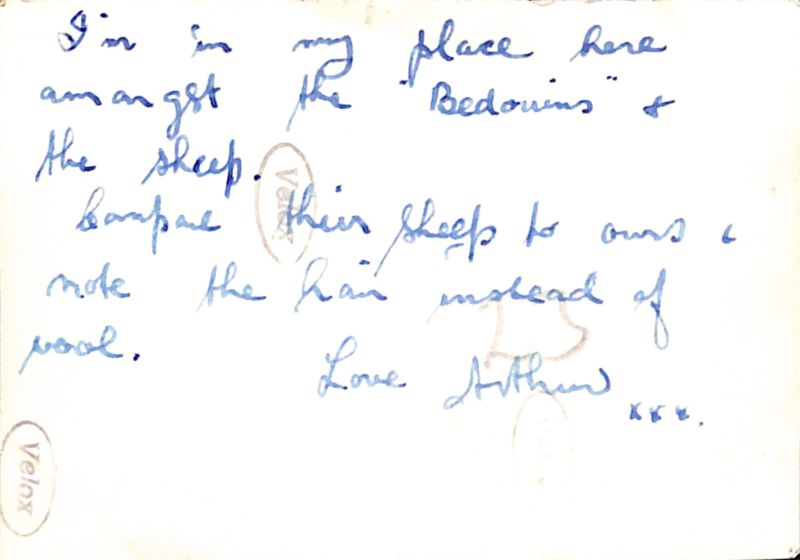 I'm in my place here
amongst the "Bedouins" &
the sheep.
Compare their sheep to ours &
note the hair instead of
wool.
Love Arthur xxx.
Velox
Velox